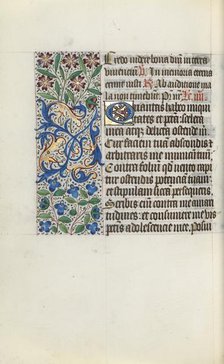 Credo videre bona dni in terra
viventium In memoria eterna
erit iusti Ab auditione ma
la non timebit Pr nr
Quantas habeo iniqui
tates et pctā scelera
mea atqz delicta ostende m
Cur faciem tuam abscondis et
arbitraris me inimicum tuū
Contra folium qd vento rapi
tur ostendis potenciā tuam
et stipulam siccā persequeris
Scribis eni contra me amari
tudines: et consumere me vis
pctis adolescencie mee. Posui